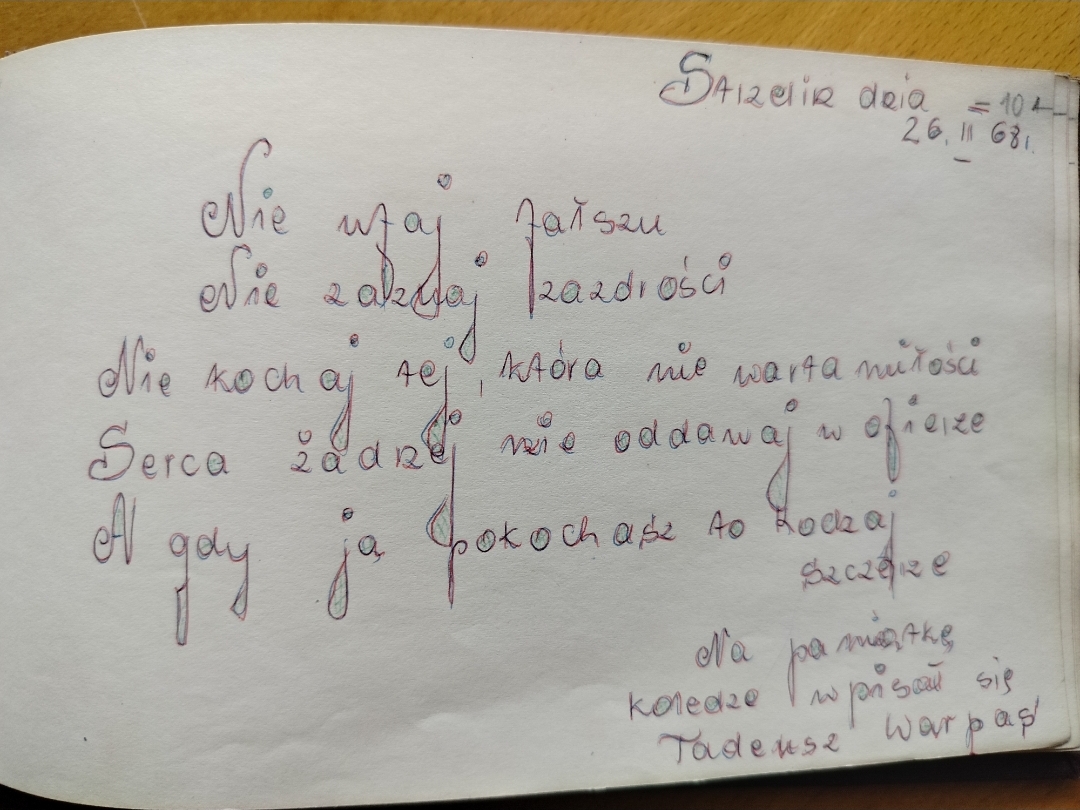 Strzelin dnia = 10 r
26. II 68r.
Nie ufaj fałszu
Nie zaznaj zazdrości
Nie kochaj tej, która nie warta miłości
Serca żadnej nie oddawaj w ofierze
A gdy ją pokochasz to kochaj
szczerze
Na pamiątkę
koledze wpisał się
Tadeusz Warpaś